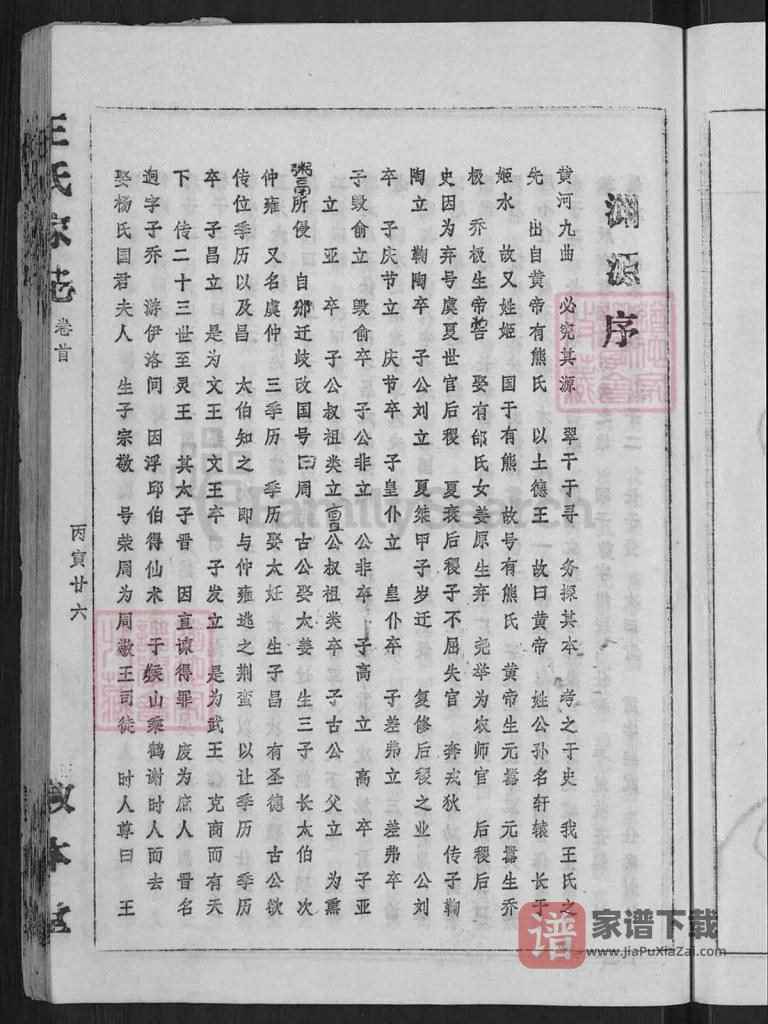 渊源序
黄河九曲 必究其源 翠干于寻 务探其本 考之于史 我王氏之
先 出自黄帝有熊氏 以土德王 故曰黄帝 姓公孙名轩辕 长于
姬水 故又姓姬 国于有熊 故号有熊氏 黄帝生元嚣 元嚣生乔
极 乔极生帝喾 娶有邰氏女姜原生弃 尧举为农师官 后稷后
史因为弃号虞夏世官后稷 夏衰后稷子不屈失官 奔戎狄 传子鞠
陶立 鞠陶卒 子公刘立 夏桀甲子岁迁 复修后稷之业 公刘
卒 子庆节立 庆节卒 子皇仆立 皇仆卒 子差弗立三差弗卒
子毁俞立 毁俞卒 子公非立 公非卒 子高立 高卒 子亚
立 亚卒 子公叔祖类立 公叔祖类卒 子古公下父立 为熏
粥 所侵 自邠迁歧改国号曰周 古公娶太姜 生三子 长太伯 次
仲雍 又名虞仲 三季历 季历娶太妊 生子昌 有圣德 古公欲
传位季历以及昌 太伯知之 即与仲雍逃之荆蛮 以让季历 季历
卒 子昌立 是为文王 文王卒 子发立 是为武王 克商而有天
下 传二十三世至灵王 其太子晋 因直谏得罪 废为庶人 晋名
迥字子乔 游伊洛间 因浮邱伯得仙术 于缑山乘鹤谢时人而去
娶杨氏国君夫人 生子宗敬 号荣周为周敬王司徒 时人尊曰 王
王氏家志
卷首
丙寅廿六
敦本堂
FamilySearch
谱
家谱下载
www.JiaPuXiaZai.com